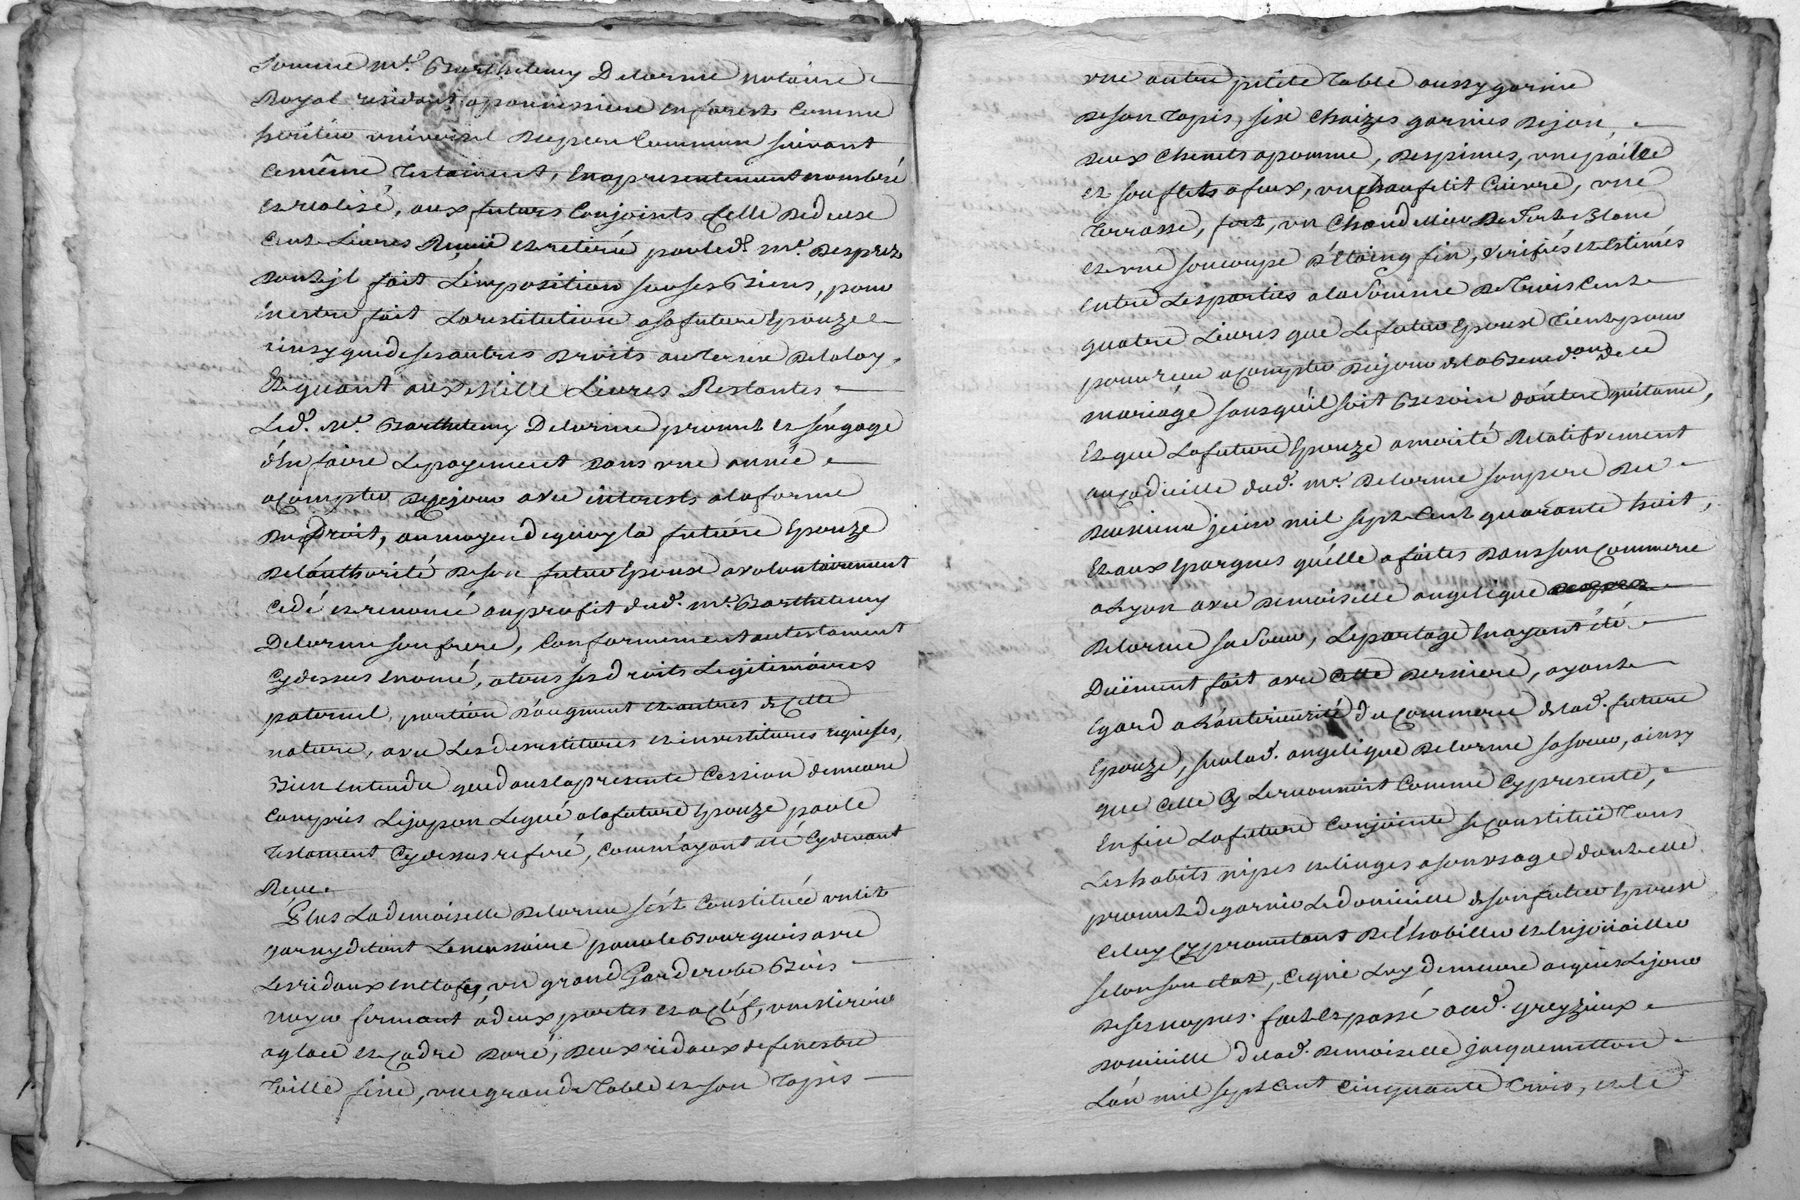 somme mr. Barthelemy Delorme notaire
Royal residant a pouvinssiere en forest comme
heritier universel du pere commun suivant
ce même testament, en a presentement nombré
et realisé, aux futurs conjoints celle de deuse
cent Livres Reçuë et retirée par led. mr. Desprez
dont jl fait L'imposition sur ses Biens, pour
en estre fait La restitution a sa future Epouze
ainsy que de ses autres droits au terme de la loy.
Et quant aux Mille Livres Restantes
Led. Mr. Barthelemy Delorme promet et s'engage
d'en faire Le payement dans une année
a compter de ce jour avec interests a la forme
du droit, au moyen de quoy la future Epouze
de l'authorité de son futur Epoux a volontairement
cedé et renoncé au profit dud. mr. Barthelemy
Delorme son frere, conformement au testament
cy dessus enomé, a tous ses droits Legitimaires
paternel, portion d'augment et autres de cette
nature, avec Les devestitures et investitures requises,
Bien entendu que dans la presente cession demeure
compris Le jupon Legué a la future Epouze par le
testament cy dessus referé, comm'ayant été cy devant
Reçu.
Plus La demoiselle Delorme s'est constituée un lit
garny de tout Le necessaire pour le Bourgeois avec
Les ridaux en etofe, un grand Garderobe Bois
noyer fermant a deux portes et a clef, un Miroir
a glace et cadre doré, deux ridaux de fenestre
toille fine, une grande table et son tapis
une autre petite table aussy garnie
de son tapis, six chaizes garnies de jon,
deux chenets a pomme, des pinces, une paille
et soufflets a feux, un chaufelit cuivre, une
terrasse, fert, un chandellier de fert Blanc
et une soucoupe d'étaing fin, verifiés et Estimés
entre Les parties a la somme de trois cent
quatre Livres que Le futur Epoux tient pour
pour reçu a compter du jour de la Bened.on de ce
mariage sans qu'il soit Besoin d'autre quitance,
Et que La future Epouze a merité Relativement
au codicille dud. mr. Delorme son pere du
deuxieme juin mil sept cent quarante huit,
Et aux Epargnes qu'elle a faites dans son commerce
a Lyon avec demoiselle angelique
Delorme sa soeur, Le partage en ayant été
Duëment fait avec cette derniere, ayant
Egard a L'anteriorité du commerce de lad. future
Epouze, sur lad. angelique Delorme sa soeur, ainsy
que celle cy Le reconnoit comme cy presente,
Enfin La future conjointe se constituë tous
Les habits nipes et linges a son usage dont elle
promet de garnir Le domicille de son futur Epoux
celuy cy promettant de L'habiller et Enjoüailler
selon son etat, ce qui Luy demeure acquis Le jour
de ses nopces. fait et passé aud. greyzieux
domicille de lad. demoiselle jacquemetton
L'an mil sept cent cinquante trois, et le